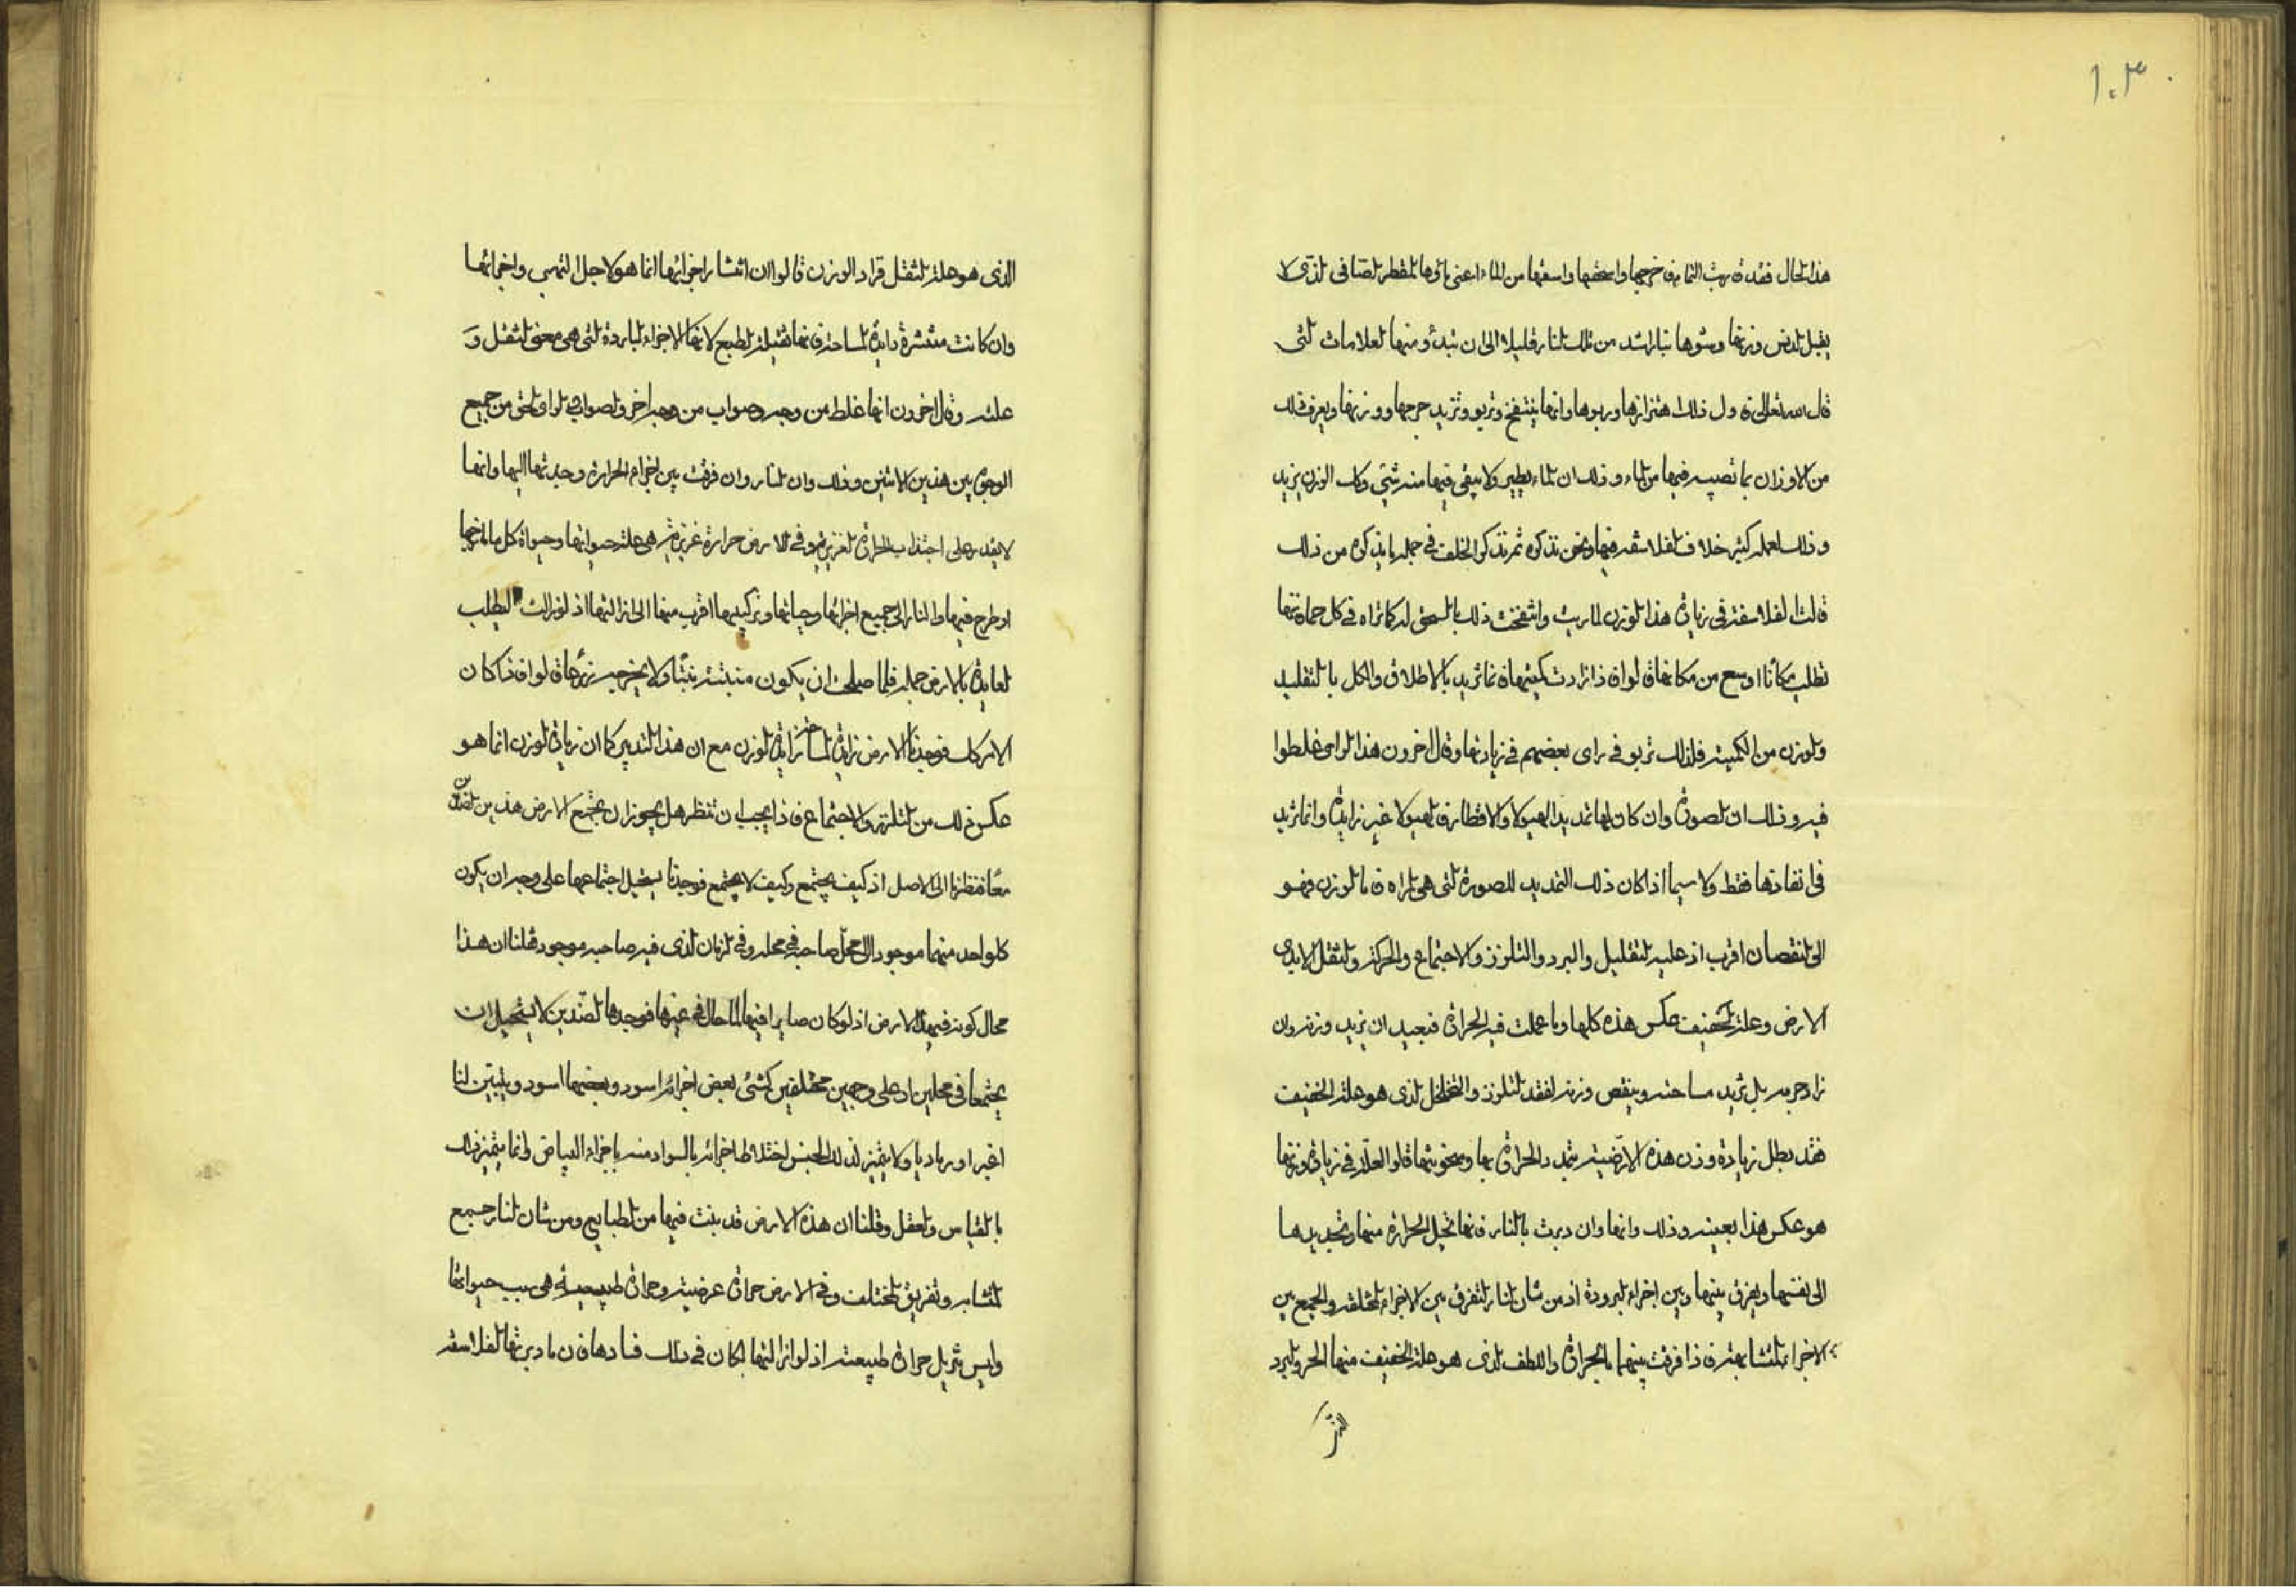 ١٠٣
هذا الحال فقد قربت التمام فن خرجها واسحقها واسقها من الماء اعنى ماؤها المقطر الصافى الذى لا
يقبل الدنس وزنها وشوها بنار اشد من تلك النار قليلا الى ان تبدأ ومنها العلامات التى
قال الله تعالى فاول ذلك اهتزازها وربوها وانها ينتفخ وتربو وتزيد جرمها ووزنها ويعرف ذلك
من الاوزان بما تصب فيها من الماء وذلك ان الماء يطير ولا يبقى فيها منه شئ وكل الوزن يزيد
وذلك لعمله كثير خلاف الفلاسفه فيها ونحن نذكره ثم نذكر الخلف فى جمله ما نذكره من ذلك
قالت الفلاسفه فى زيادة هذا الوزن لما ربت وانتفخت ذلك بالسحق لها كما تراه فى كل حماة تنها
تطلب مكانا اوسع من مكانها قالوا فاذا زادت كميتها فانما تزيد بالاطلاق والكل بالتقليد
والوزن من الكمية فلذلك تربو فى راى بعضهم فى زيادتها وقال اخرون هذا الراى غلطوا
فيه وذلك ان الصورة وان كان لها تمديد الهيولا والاقطار فالهيولا غير زايدة وانما تزيد
فى انقادها فقط ولا سيما اذا كان ذلك التمديد للصورة التى هى المراه فاما الوزن فهو
الى النقصان اقرب اذ عليه التقليل والبرد والتلزز والاجتماع والحركة والثقل لابدى
الارض وعلة الخفيف عكس هذه كلها وما عملت فيه الحرارة فبعيد ان يزيد وزنه وان
زاد جرمه بل تزيد مساحته وينقص وزنه لفقد التلزز والتخلخل الذى هو علة الخفيف
فقد بطل زيادة وزن هذه الارضية بتمديد الحرارة بها وسخونتها قالوا العلة فى زيادة وزنها
هو عكس هذا بعينه وذلك وانها وان دبرت بالنار فانها تحيل الحرارة منها وتجذبها
الى نفسها ويفرق بينها وبين اجزاء البرودة اذ من شان النار التفرق بين الاجزاء المختلفه والجمع بين
الاجزاء المتشابهة فاذا فرقت بينهما بالحرارة واللطف الذى هو علة الخفيف منها الحر والبرد
الذى
الذى هو علة الثقل فزاد الوزن قالوا ان انتشار اجزائها انما هو لاجل التهبى واجزائها
وان كانت منتشرة زايدة المساحة فانها ثقيلة الطبع لانها الاجزاء الباردة التى هى معنى الثقل و
علته وقال اخرون انها غلط من وجه وصواب من وجه اخر والصواب فى الراى الحق من جميع
الوجوه بين هذين الاثنين وذلك وان النار وان فرقت بين اجزاء الحرارة وجذبتها اليها وانها
لا يقدر على اجتذاب الحرارة الغريزية وفى الارض حرارة غريزية هى علة حيواتها وحيواة كل ما اخرجها
او طرح فيها والنار الى جميع اجزائها وحياتها وتركيبها اقرب منها الى ازالتها اذ لو زالت لبطلت
الفايدة بالارض جمله فلما صلحت ان يكون منبتة نبتا ولا يخرجه بزرها قالوا فاذا كان
الامر كذلك فوجدنا الارض زايدة المساحة زايدة الوزن مع ان هذا التدبير كان زيادة الوزن انما هو
عكس ذلك من التلزز والاجتماع فاذا يجب ان تنظر هل يجوز ان يجتمع الارض هذين الضدين
معا فنظرنا الى الاصل اذ كيف يجتمع وكيف لا يجتمع فوجدنا يستحيل اجتماعها على وجه ان يكون
كلو احد منهما موجود الى محل صاحبه فى محله وفى الزمان الذى فيه صاحبه موجود قلنا ان هذا
محال كونه فى هذا الارض اذ لو كان صايرا فيها لما حال فى غيرها فوجدها الضدين لا يستحيل ان
يجتمعا فى محلين او على وجهين مختلفين كشئ بعض اجزائه اسود وبعضها اسود ويتبين لنا
اغبر او رماديا ولا يتميز لذلك الحبس اختلاط اجزائه بالسواد منه باجزاء البياض وانما يتميز ذلك
بالقياس والعقل وقلنا ان هذه الارض قد بنت فيها من الطبايع ومن شان النار جميع
المتشابه وتفريق المختلف وفى الارض حرارة عرضية وحرارة طبيعية هى سبب حيواتها
وليس تزيل حرارة طبيعية اذ لو ازالتها لكان فى ذلك فسادها فان ما دبرتها الفلاسفه